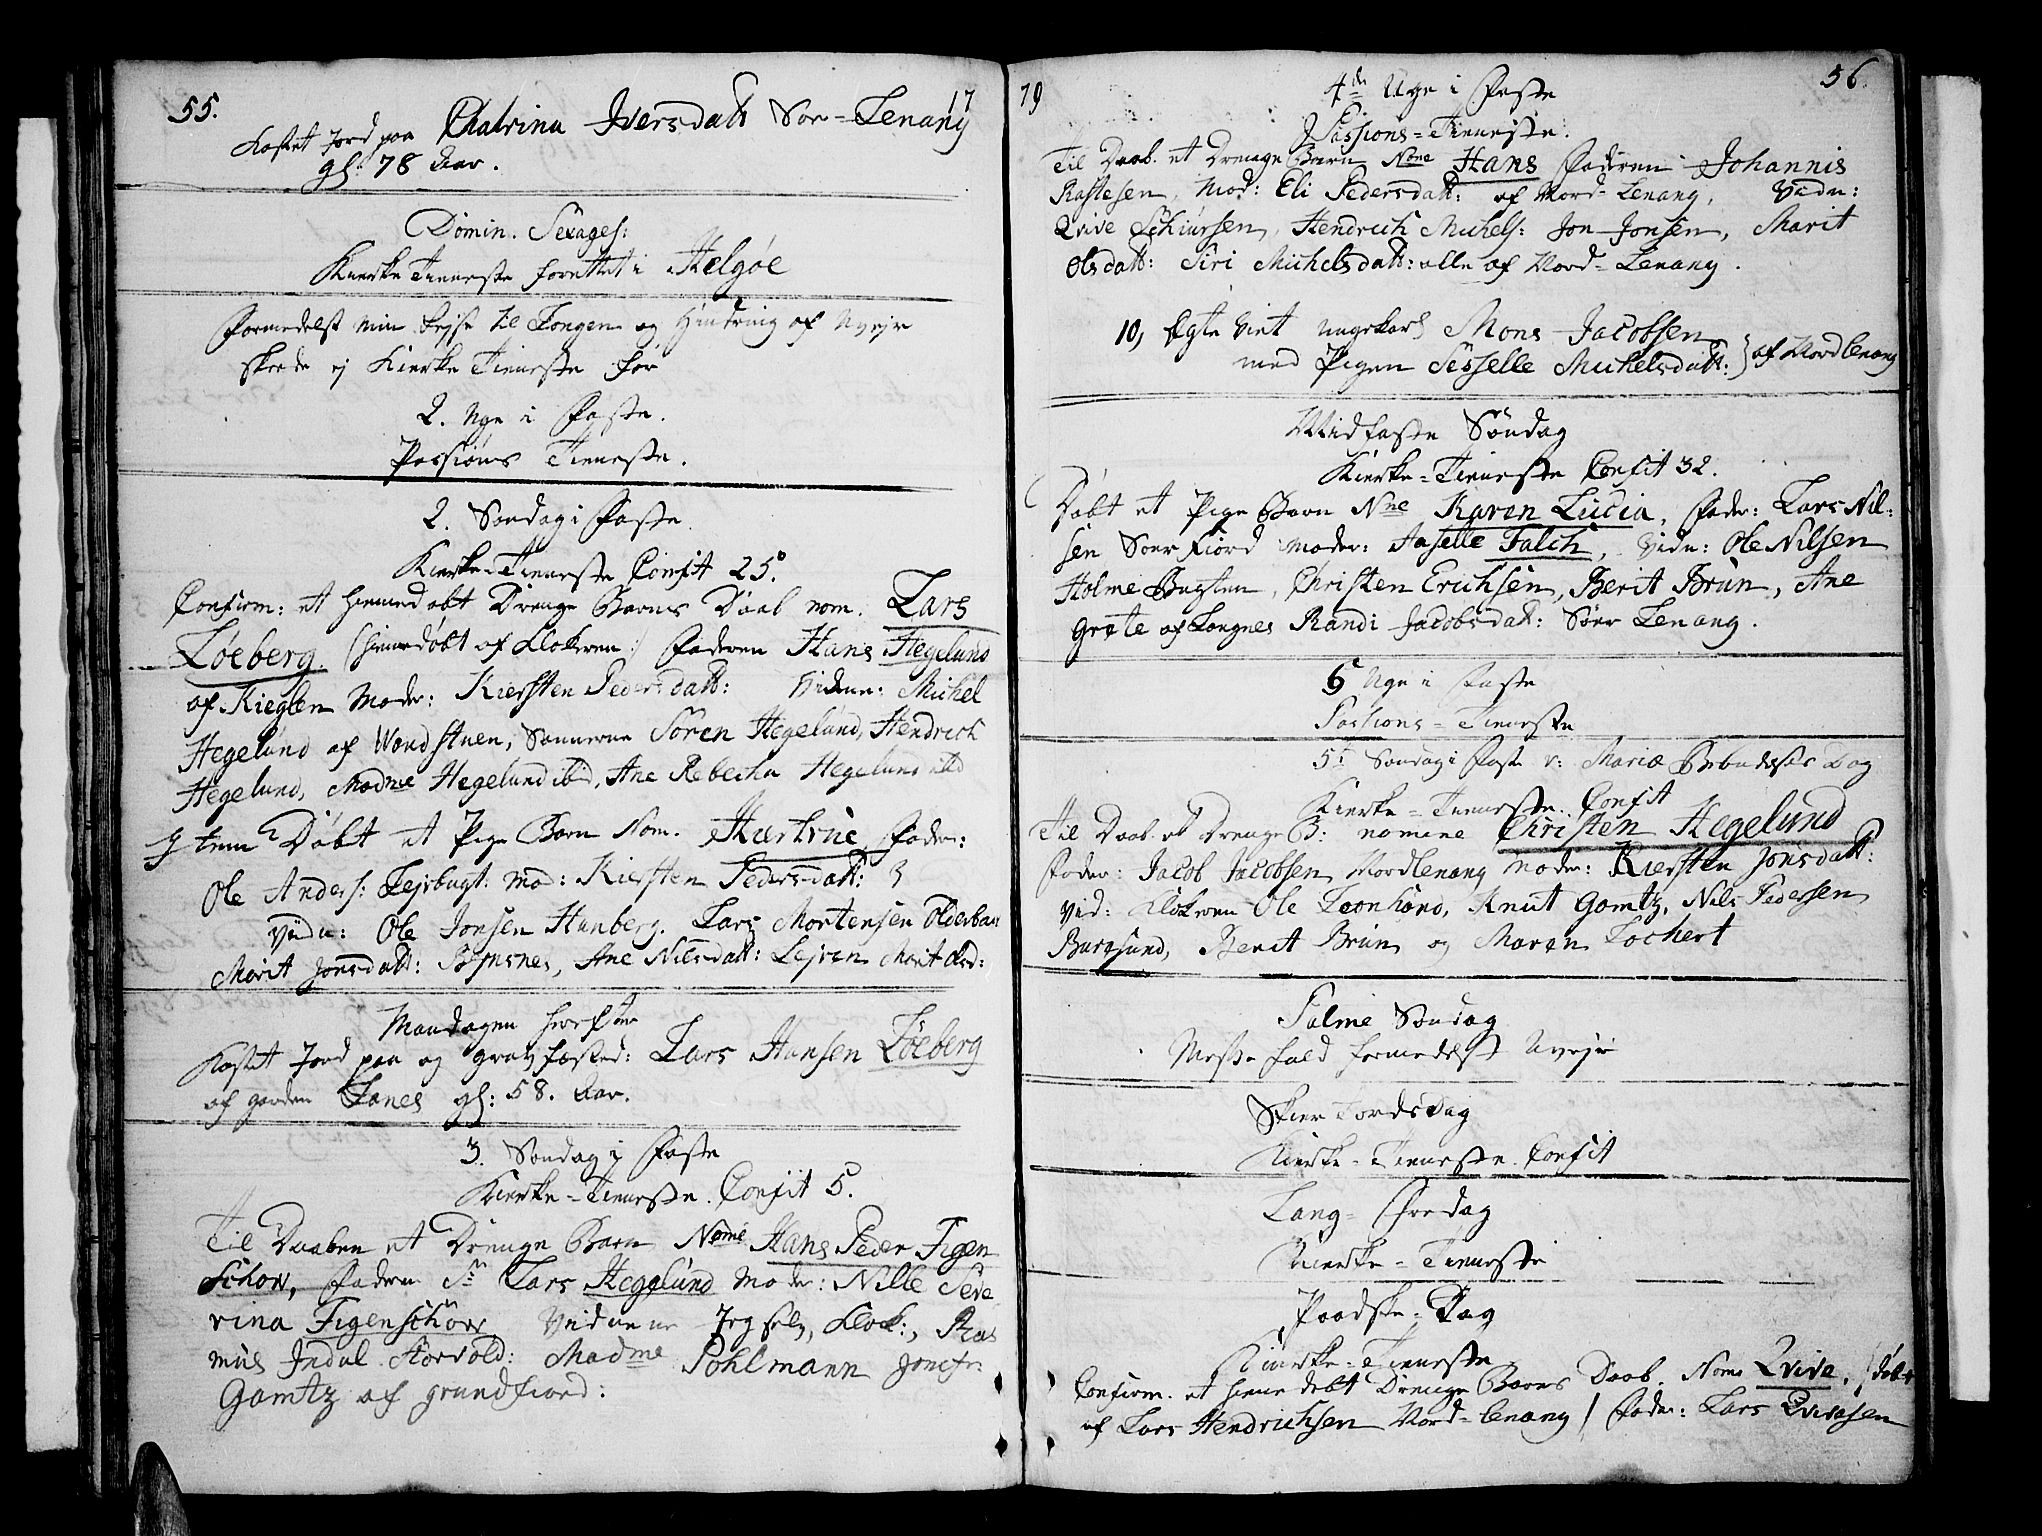 55.
17
Kastet Jord paa Chatrina Iversdatt Sør=Lenang
gl: 78 Aar.
Domin. Sexages:
Kierke Tieneste forettet i Helgøe
Formedelst min Rejse til Tongen og Hindring af Uvejr
skeede ej Kierke Tieneste før
2. Uge i Faste.
Passions Tieneste.
2. Søndag i Faste.
Kierke-Tieneste Confit 25.
Confirm: et hiemedøbt Drenge Barns Daab nom. Lars
Løeberg. (hiemedøbt af Klokeren:) Faderen Hans Hegelund
af Kieglen Moder: Kiersten Pedersdatt: Vidne: Michel
Hegelund af Vandstuen, Sønnerne Sören Hegelund, Hendrich
Hegelund, Madme Hegelund ibid, Ane Rebecha Hegelund ibid
Item Døbt et Pige Barn Nom. Kartrine Fader:
Ole Anders: Lejrbugt: Mod: Kiersten Pedersdatt:
Vidn: Ole Jonsen Hanberg. Lars Mortensen Olderbak
Marit Jonsdatt: Bensnes, Ane Nilsdatt: Lejren Marit Olsd:
Mandagen herefter
Kastet Jord paa og grav fæsted: Lars Hansen Løeberg
af gaarden Lanes gl: 58. Aar.
3. Søndag i Faste
Kierke-Tieneste. Confit 5.
Til Daaben et Drenge Barn Nome Hans Peder Figen
Schow, Faderen Sr Lars Hegelund Moder: Nille Seve
rina Figenschow Vidnene Jeg selv, Klok:, Ras
mus Indal Aarvold: Madme Pohlmann Jomfr:
Gamtz af Grundfiord:
19
56.
4de Uge i Faste
Passions=Tieneste.
Til Daab. et Drenge Barn Nne Hans Faderen Johannis
Rastesen, Mod: Eli Pedersdatt: af Nord-Lenang, Vidn:
Qvive Schiursen, Hendrich Michels: Jon Jonsen, Marit
Olsdatt: Siri Michelsdatt: alle af Nord=Lenang.
10, Egte Viet ungekarl Mons Jacobsen
med Pigen Sisselle Michelsdatt: } af Nordlenang
Midfaste Søndag
Kierke=Tieneste Confit 32.
Døbt et Pige Barn Nne Karen Lucia, Fader: Lars Nil=
sen Sørfiord Moder: Jaselle Falch, Vidn: Ole Nilsen
Holme Bugten, Christen Erichsen, Berit Brun, Ane
Grete af Langnes Randi Jacobsdatt: Sörr Lenang.
6 Uge i Faste
Passions=Tieneste
5te Søndag i Faste v: Mariæ Bebudelses Dag
Kierke=Tieneste. Confit
Til Daab et Drenge B: nomine Christen Hegelund
Fader: Jacob Jacobsen Nordlenang Moder: Kiersten Jonsdatt:
Vid: Klokeren Ole Leonhard, Knut Gamtz, Nils Pedersen
Buresund, Berit Brun og Maren Lochert
Palme Søndag
Messe fald formedelst Uvejr
Skier Torsdag
Kierke-Tieneste. Confit
Lang=Fredag
Kierke=Tieneste
Paaske=Dag
Kierke=Tieneste
Confirm. et hieme døbt Drenge Barns Daab. Nome Qvive, /:døbt
af Lars Hendrichsen Nord=lenang / Fader: Lars Qvivesen